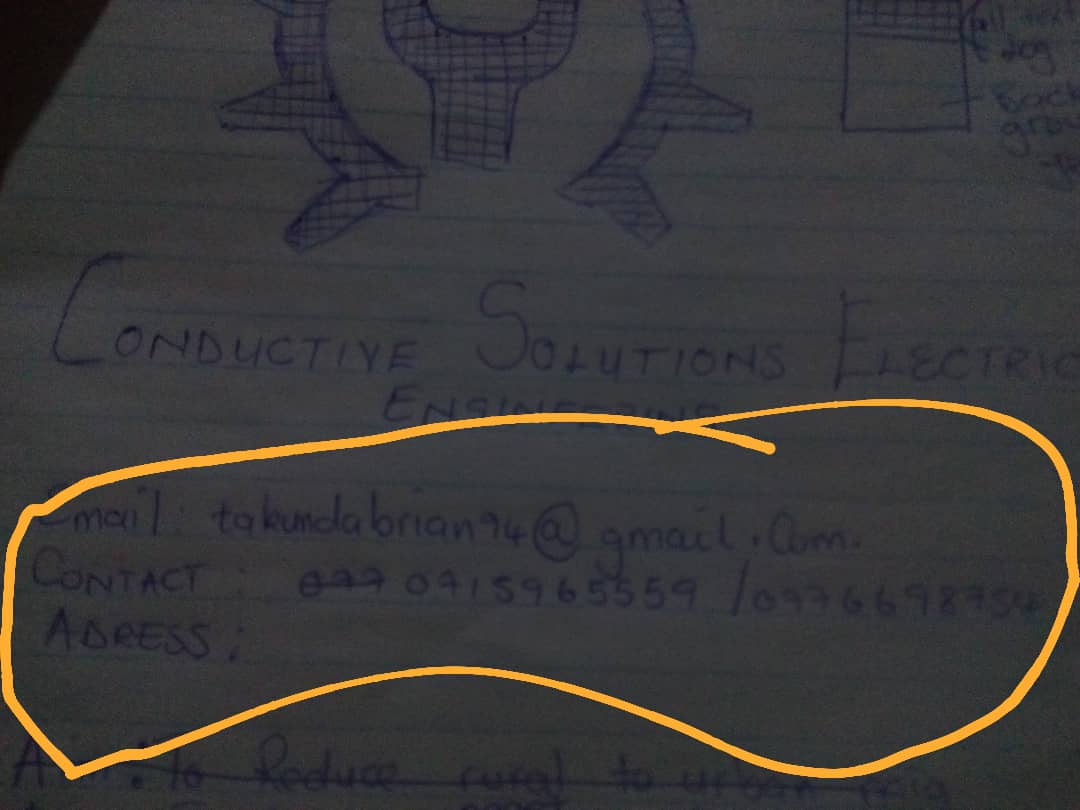 dog
Back
CONDUCTIVE SOLUTIONS ELECTRIC
ENGINEERING
Email: takundabrian94@gmail.Com.
CONTACT : 077 0715965559 / 0776698754
ADRESS :
To Reduce rural to urban